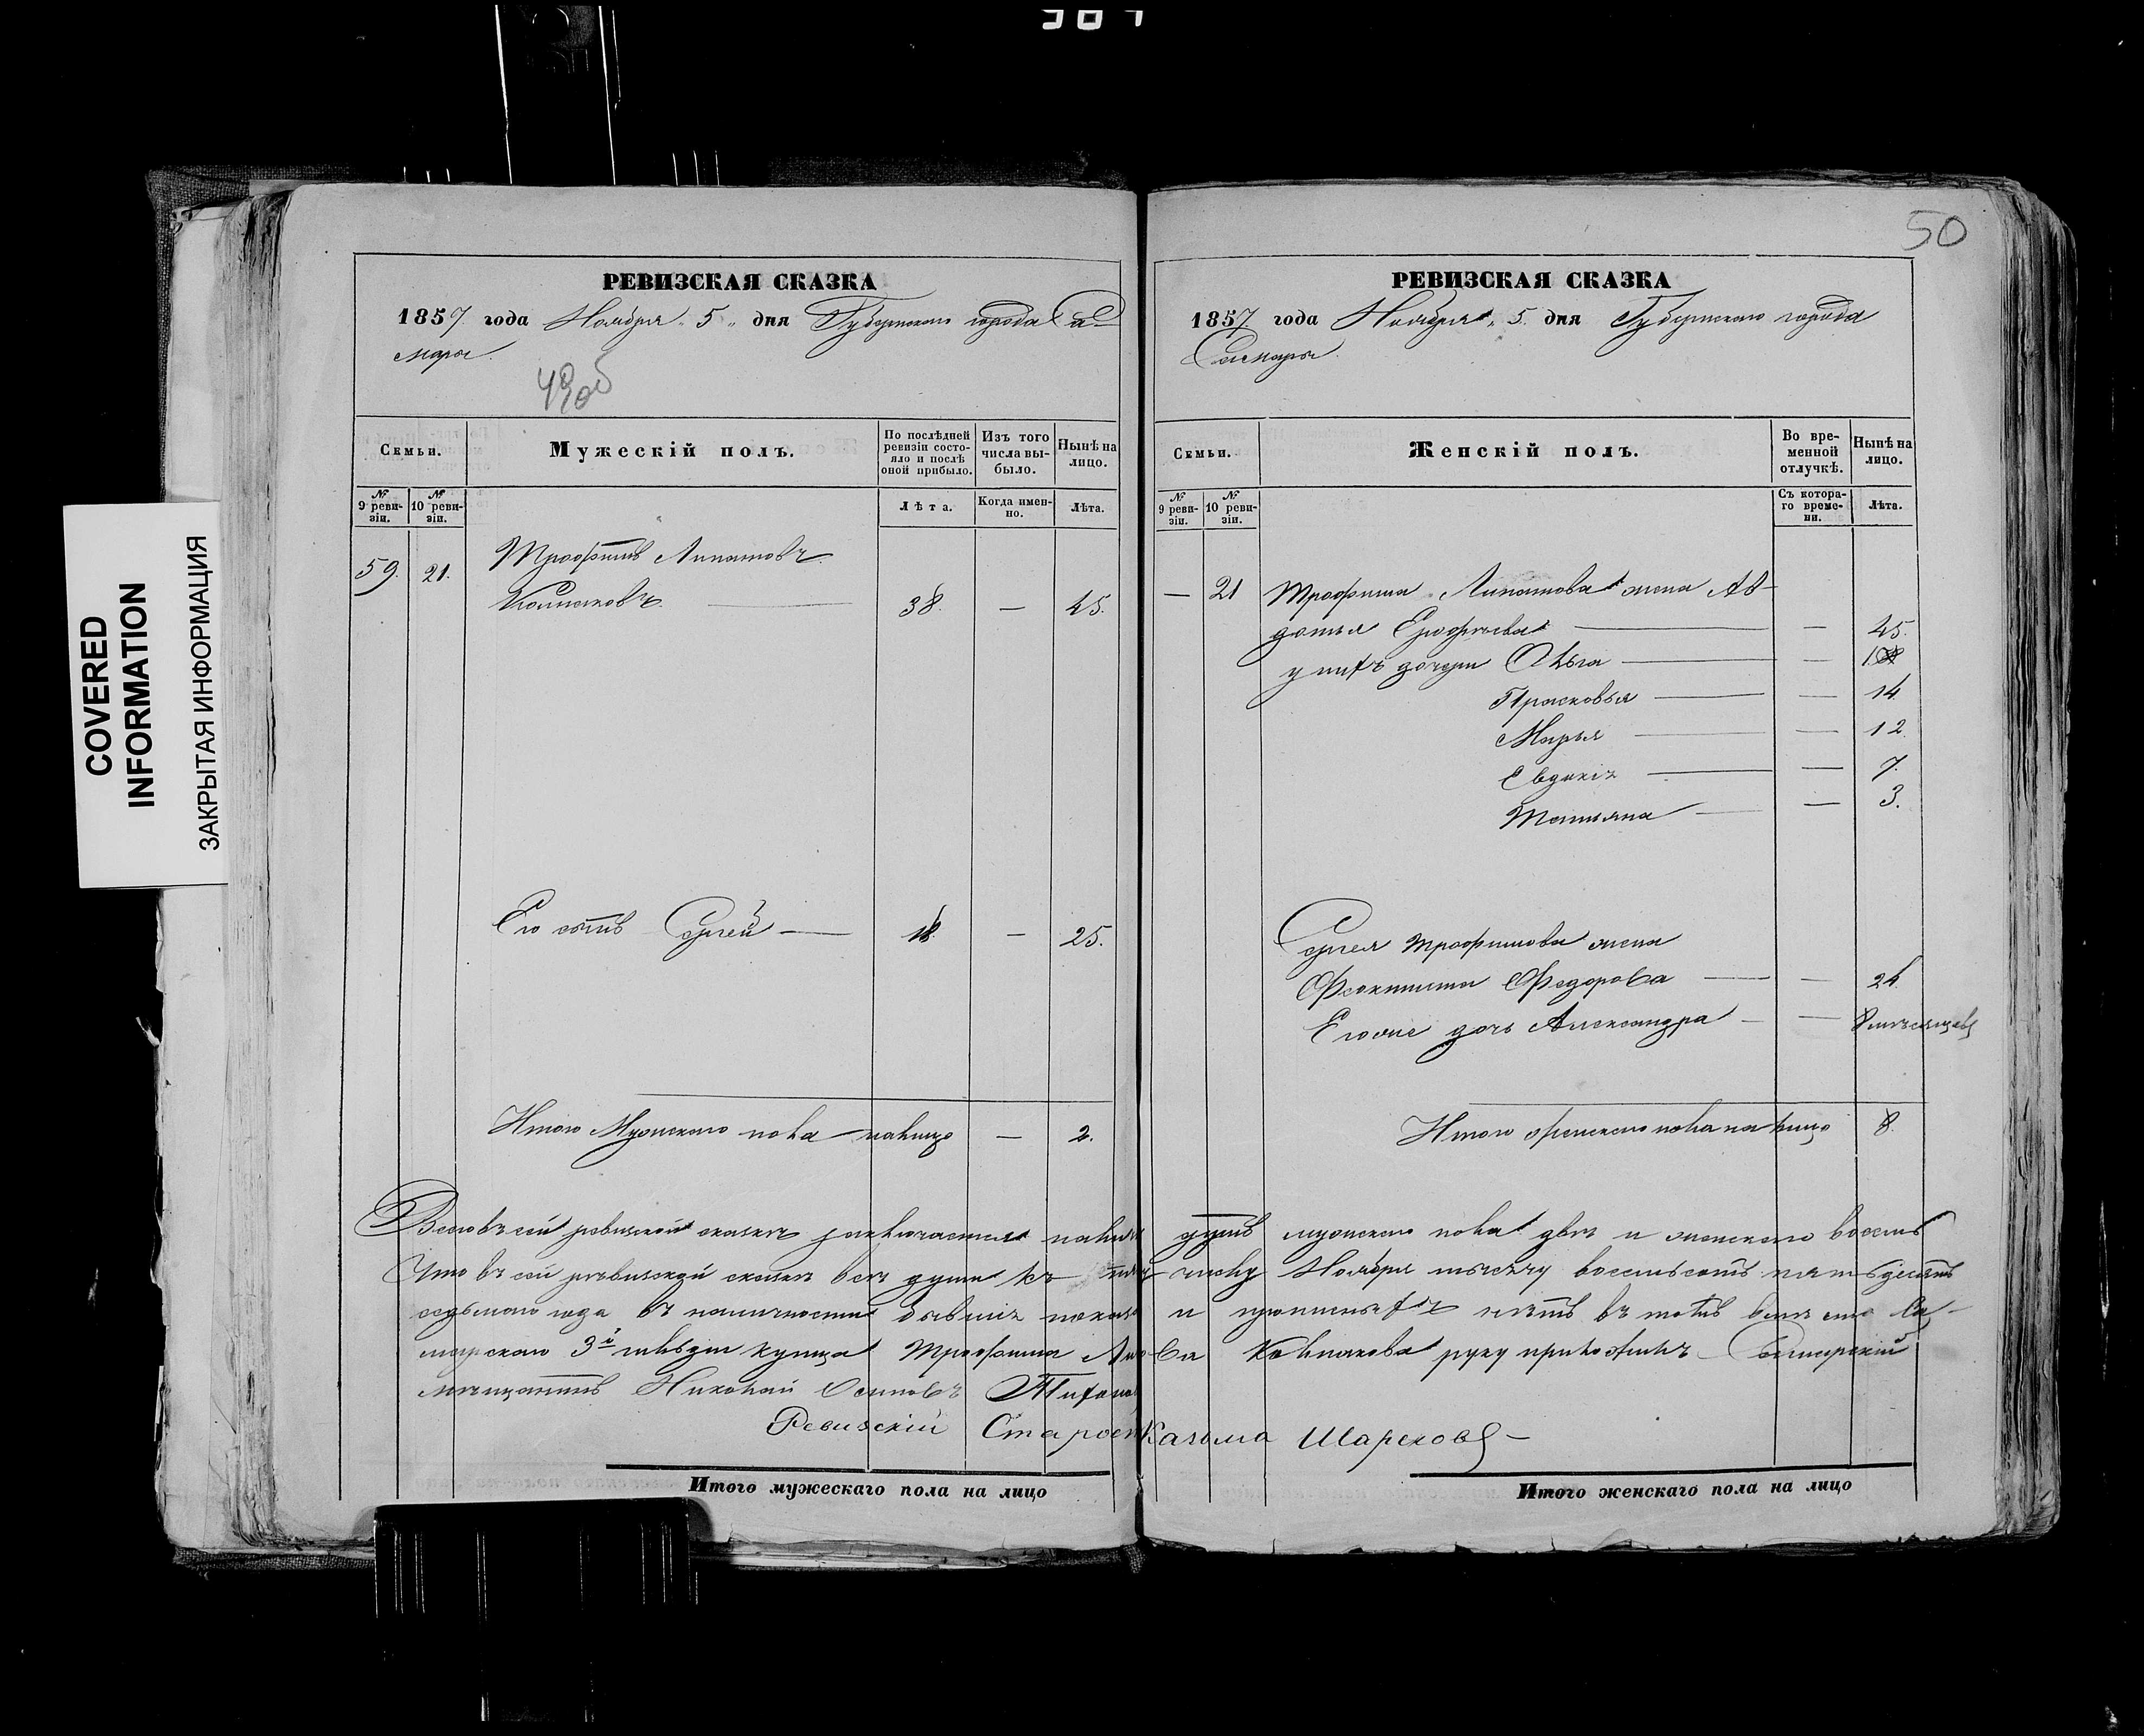 50
COVERED
INFORMATION
ЗАКРЫТАЯ ИНФОРМАЦИЯ
РЕВИЗСКАЯ СКАЗКА
1857 года Ноября „5„ дня Губернскаго города Са-
мары.
49об
Семьи.
Мужескій полъ.
По послѣдней ревизіи состояло и послѣ оной прибыло.
Изъ того числа выбыло.
Нынѣ на лицо.
№ 9 ревизіи.
№ 10 ревизіи.
Лѣта.
Когда именно.
Лѣта.
59. 21. Трофимъ Липатовъ
Колпаковъ. 38. — 45.
Его сынъ Сергей — 18 — 25.
Итого Мужескаго пола налицо — 2.
РЕВИЗСКАЯ СКАЗКА
1857. года Ноября „5. дня Губернскаго города
Самары.
Семьи.
Женскій полъ.
Во временной отлучкѣ.
Нынѣ на лицо.
№ 9 ревизіи.
№ 10 ревизіи.
Съ котораго времени.
Лѣта.
— 21 Трофима Липатова жена Ав-
дотья Ерофѣева — — 45.
у нихъ дочери Ольга — —
Прасковья — — 14
Марья — — 12.
Евдокія — — 7.
Татьяна — — 3.
Сергея Трофимова жена
Феоктиста Федорова — — 24
Егоже дочь Александра — — 8 мѣсяцевъ
Итого женскаго пола на лицо 8.
Всего въ сей ревиской сказкѣ заключается налицо душъ мужескаго пола двѣ и женскаго восемь
Что въ сей ревизской сказкѣ всѣ души къ числу Ноября тысячу восемьсотъ пятьдесятъ
седьмаго года въ наличности бывшіе показаны и прописныхъ нѣтъ въ томъ вмѣсто Са-
марскаго 3й гильдіи купца Трофима Липатова Колпакова руку приложилъ Самарскій
мѣщанинъ Николай Осиповъ Тихонов
Ревизскій Староста Казьма Шареховъ
Итого мужескаго пола на лицо
Итого женскаго пола на лицо